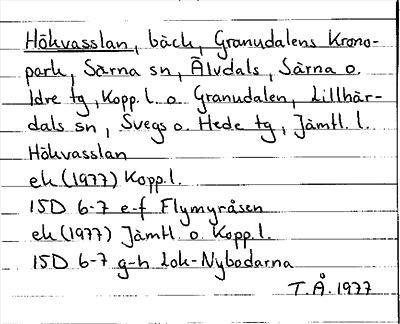 Hökvasslan, bäck, Granudalens Krono-
park, Särna sn, Älvdals, Särna o.
Idre tg, Kopp. l. o. Granudalen, Lillhär-
dals sn, Svegs o. Hede tg, Jämtl. l.
Hökvasslan
ek (1977) Kopp. l.
15D 6-7 e-f Flymyråsen
ek (1977) Jämtl. o. Kopp. l.
15D 6-7 g-h Lok-Nybodarna
T. Å. 1977